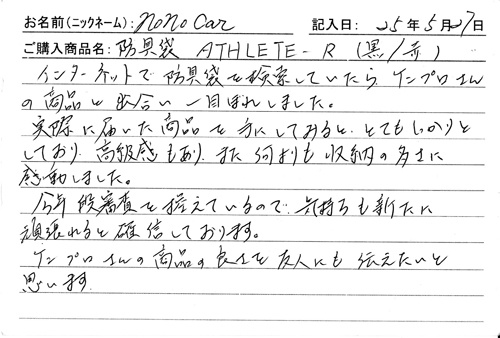 お名前(ニックネーム): NoNo Car 記入日: 25年5月27日
ご購入商品名: 防具袋 ATHLETE-R (黒/赤)
インターネットで防具袋を検索していたら、ケンプロさん
の商品と出会い一目ぼれしました。
実際に届いた商品を手にしてみると、とてもしっかりと
しており、高級感もあり、また何よりも収納の多さに
感動しました。
今年段審査を控えているので、気持ちも新たに
頑張れると確信しております。
ケンプロさんの商品の良さを友人にも伝えたいと
思います。